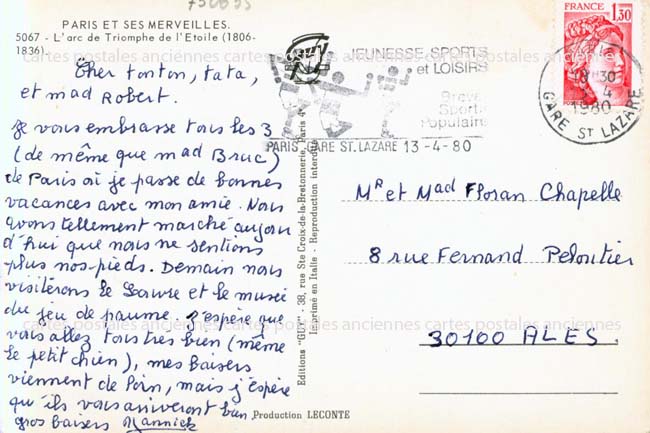 750855
PARIS ET SES MERVEILLES.
5067 - L'arc de Triomphe de l'Etoile (1806-
1836).
Cher tonton, tata,
et mad Robert.
Je vous embrasse tous les 3
(de même que mad Bruc)
de Paris où je passe de bonnes
vacances avec mon amie. Nous
avons tellement marché aujour
d'hui que nous ne sentions
plus nos pieds. Demain nous
visiterons le Louvre et le musée
du jeu de paume. J'espère que
vous allez tous très bien (même
le petit chien), mes baisers
viennent de loin, mais j'espère
qu'ils vous arriveront bien
gros baisers Yannick
Editions "GUY" - 38, rue Ste Croix-de-la-Bretonnerie, Paris 4e
Imprimé en Italie - Reproduction interdite
Production LECONTE
JEUNESSE SPORTS
et LOISIRS
Brevet
Sportif
Populaire
PARIS GARE ST. LAZARE 13-4-80
FRANCE
1,30
18H30
4
1980
GARE ST LAZARE
Mr et Mad Floran Chapelle
8 rue Fernand Peloutier
30100 ALES.
cartes postales anciennes cartes postales anciennes cartes postales anciennes